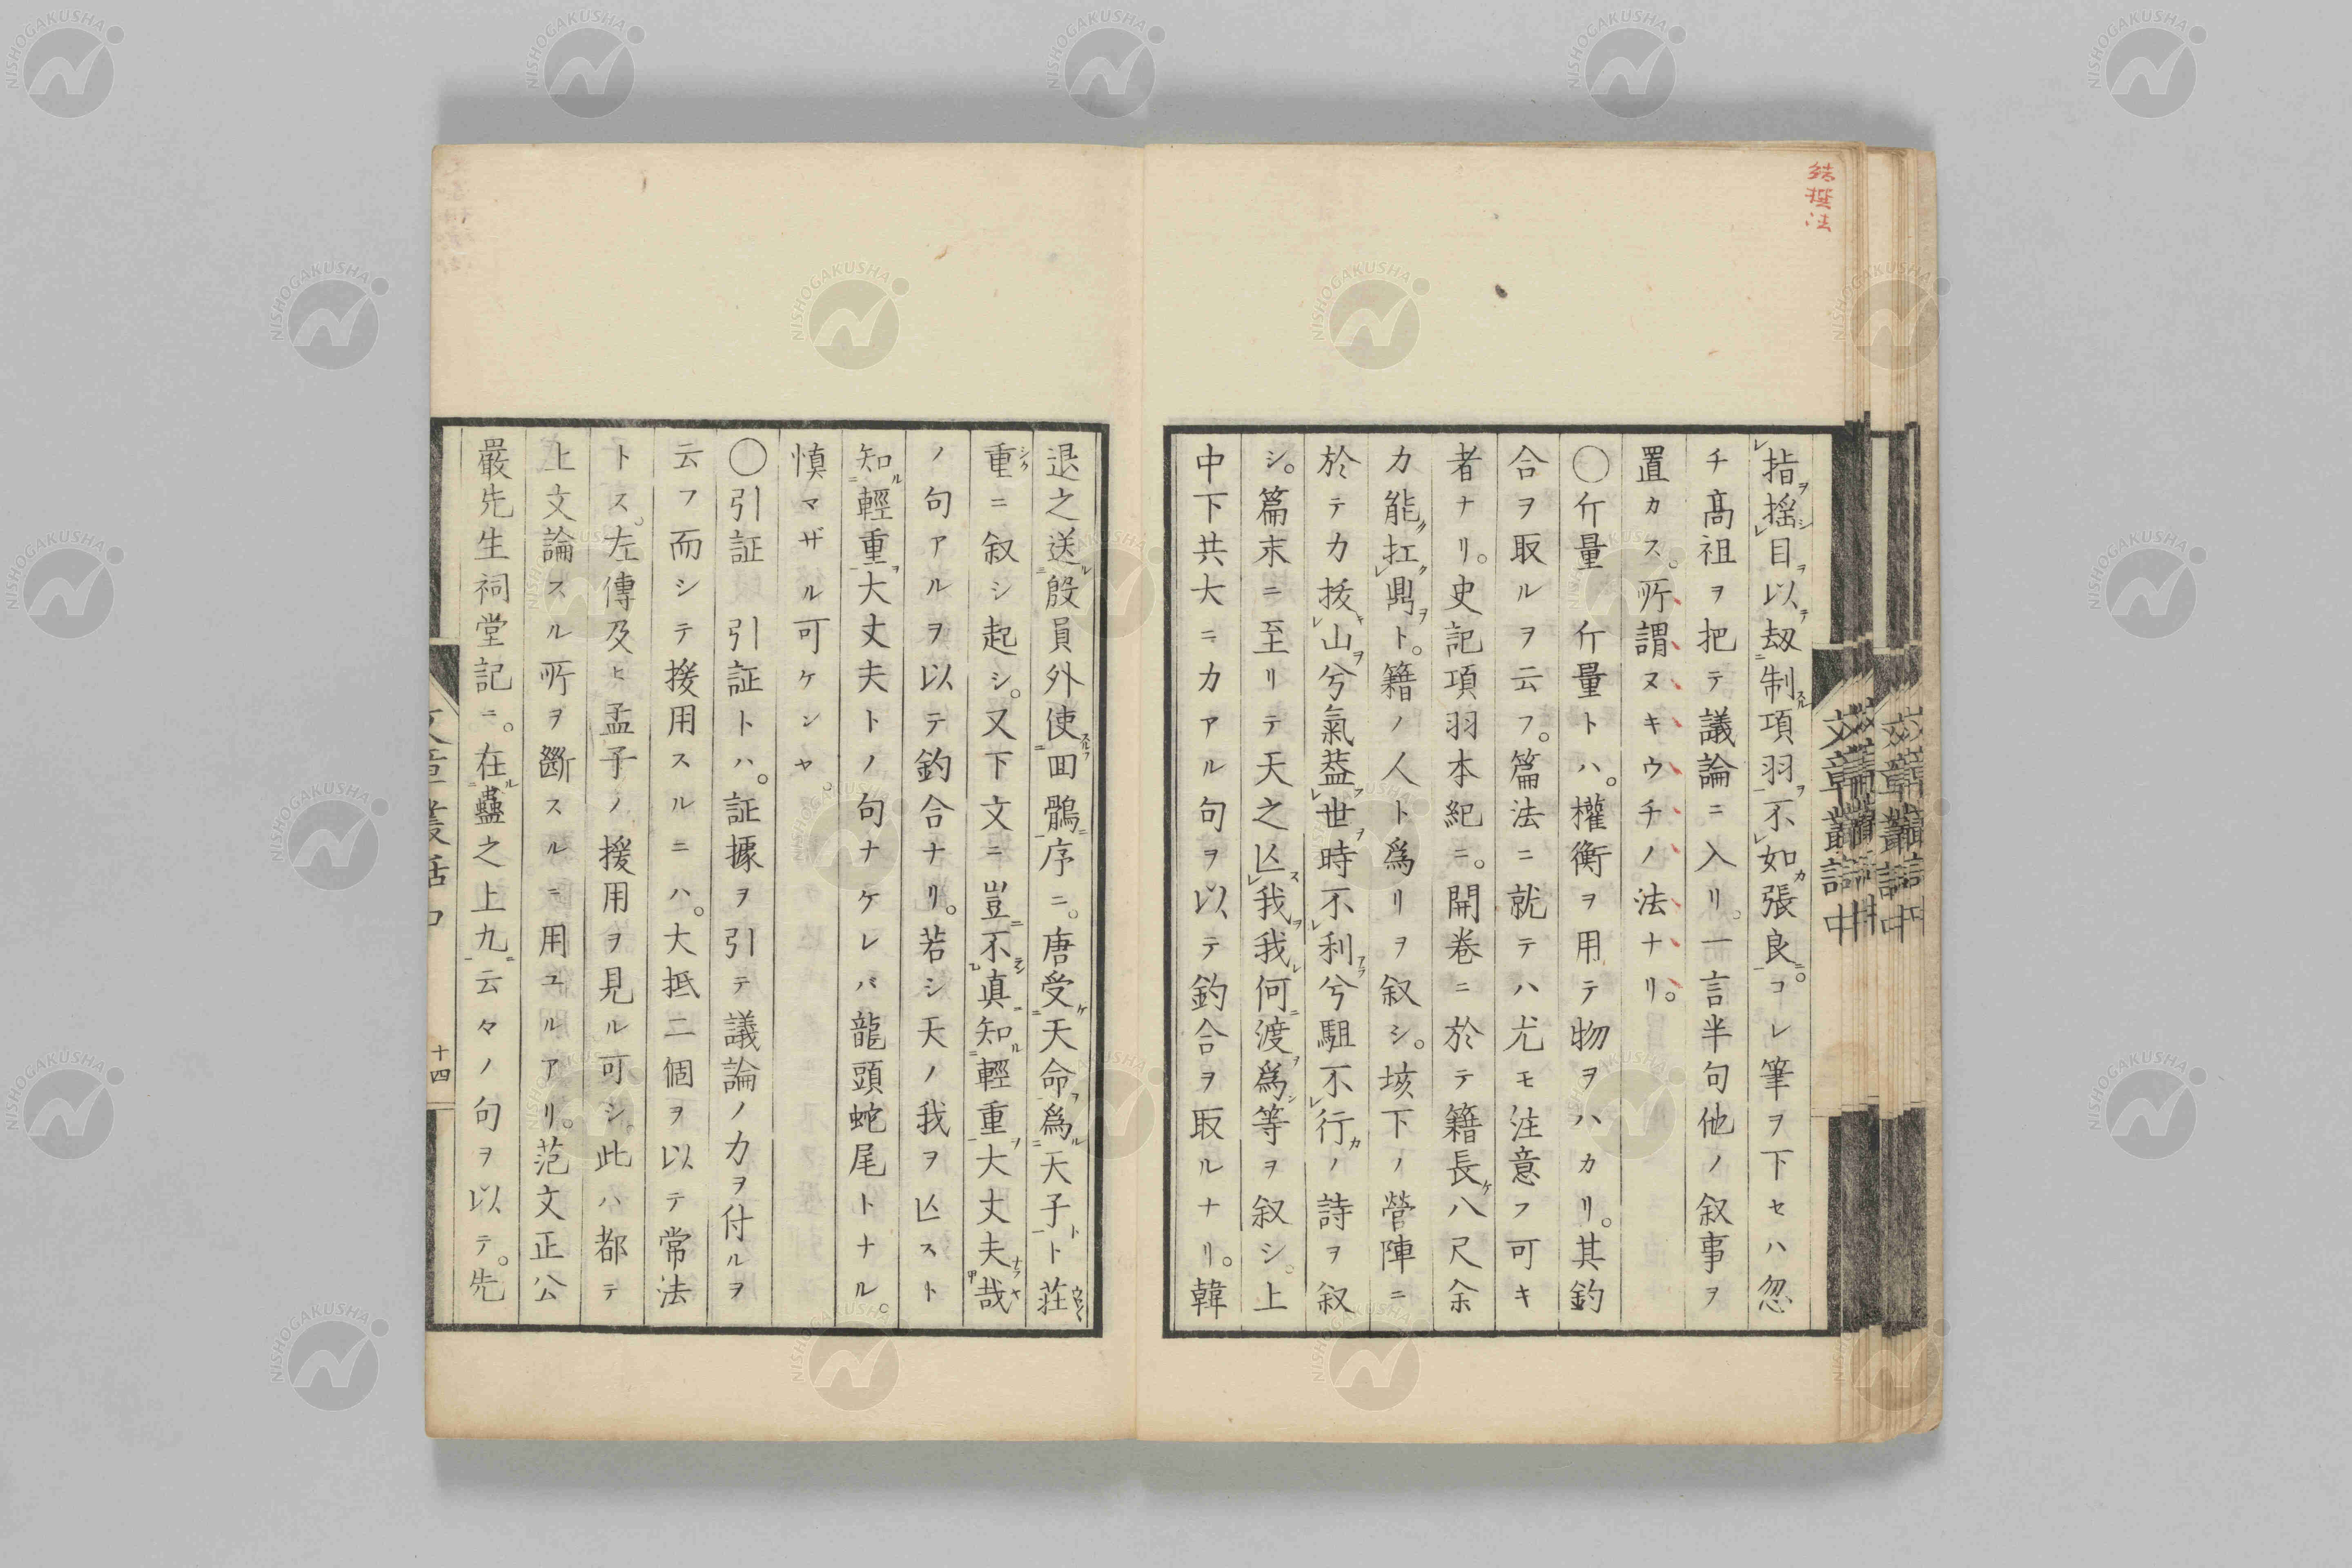 結撰法
指揺目以劫制項羽不如張良。コレ筆ヲ下セハ忽
チ髙祖ヲ把テ議論ニ入リ。一言半句他ノ叙事ヲ
置カス。所謂ヌキウチノ法ナリ。
〇斤量 斤量トハ。權衡ヲ用テ物ヲハカリ。其釣
合ヲ取ルヲ云フ。篇法ニ就テハ尤モ注意フ可キ
者ナリ。史記項羽本紀ニ。開卷ニ於テ籍長八尺余
カ能扛鼎ト。籍ノ人ト爲リヲ叙シ。垓下ノ營陣ニ
於テ力拔山兮氣葢世時不利兮騅不行ノ詩ヲ叙
シ。篇末ニ至リテ天之亾我我何渡爲等ヲ叙シ。上
中下共大ニ力アル句ヲ以テ釣合ヲ取ルナリ。韓
退之送殷員外使回鶻序ニ。唐受天命爲天子ト荘
重ニ叙シ起シ。又下文ニ豈不真知輕重大丈夫哉
ノ句アルヲ以テ釣合ナリ。若シ天ノ我ヲ亾スト
知輕重大丈夫トノ句ナケレバ龍頭蛇尾トナル。
慎マザル可ケンヤ。
〇引証 引証トハ。証據ヲ引テ議論ノ力ヲ付ルヲ
云フ而シテ援用スルニハ。大抵二個ヲ以テ常法
トス。左傳及ヒ孟子ノ援用ヲ見ル可シ。此ハ都テ
上文論スル所ヲ斷スルニ用ユルアリ。范文正公
嚴先生祠堂記ニ。在蠱之上九云々ノ句ヲ以テ。先
文章叢話中
十四
文章叢話中